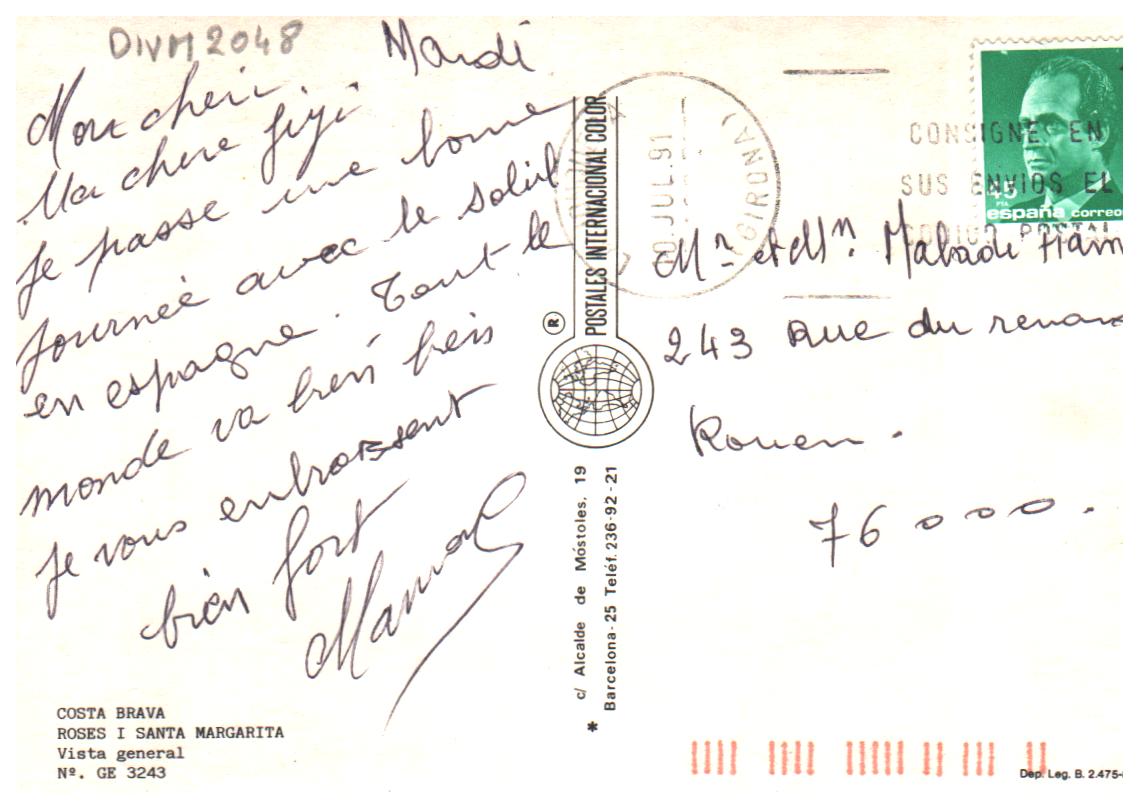 DIVM2048
Mardi
Mon cheri
Ma chere gigi
Je passe une bonne
journée avec le soleil
en espagne. Tout le
monde va bien beis
Je vous enbrassent
bien fort
COSTA BRAVA
ROSES I SANTA MARGARITA
Vista general
Nº. GE 3243
POSTALES INTERNACIONAL COLOR
R
c/ Alcalde de Móstoles, 19
Barcelona-25 Teléf. 236-92-21
*
JUL. 91
(GIRONA)
CONSIGNE EN
SUS ENVIOS EL
CODIGO POSTAL
45
PTA
españa correo
Mr et Mm.
243 Rue du renar
Rouen.
76000.
Dep. Leg. B. 2.475-